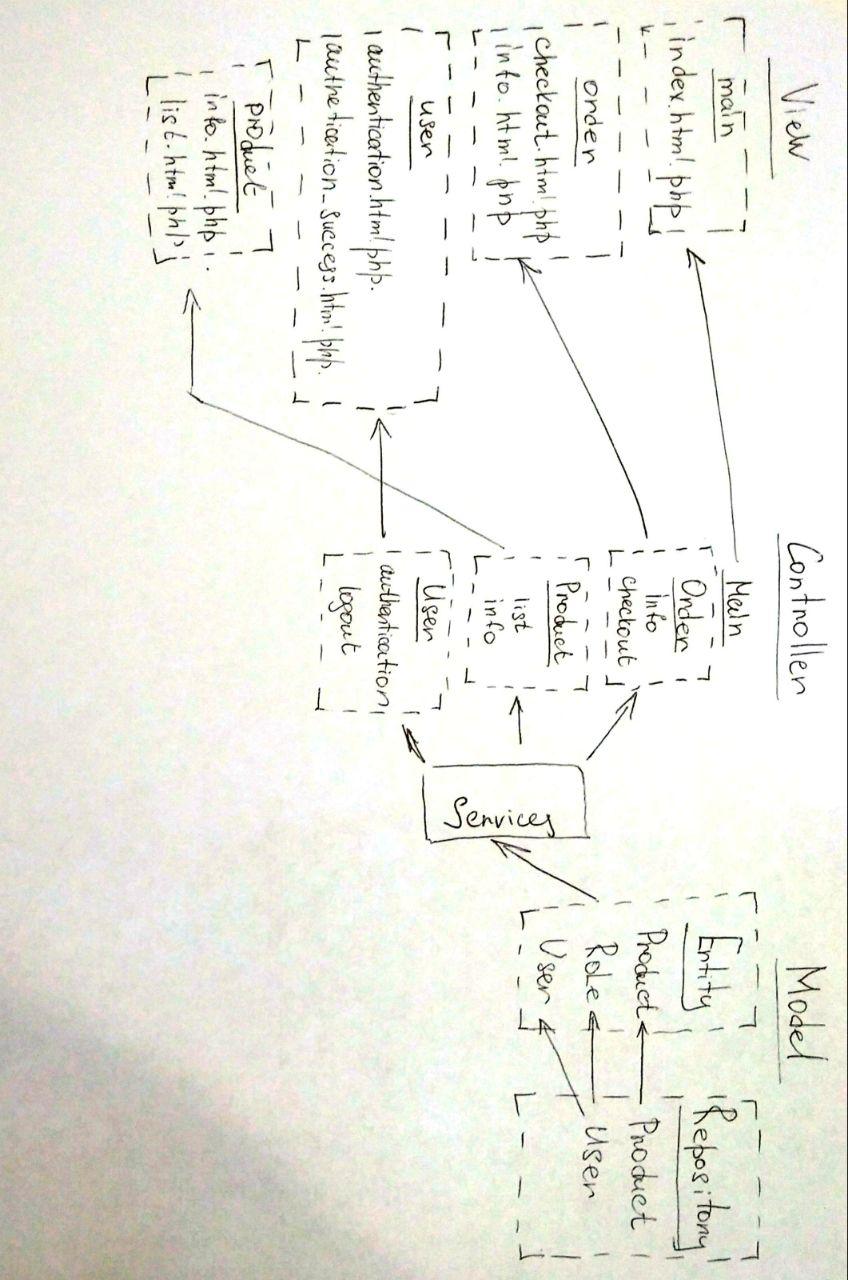 View
main
index.html.php
order
checkout.html.php
info.html.php
user
authentication.html.php.
authetication_success.html.php.
product
info.html.php.
list.html.php
Controller
Main
Order
info
checkout
Product
list
info
User
authentication
logout
Services
Model
Entity
Product
Role
User
Repository
Product
User